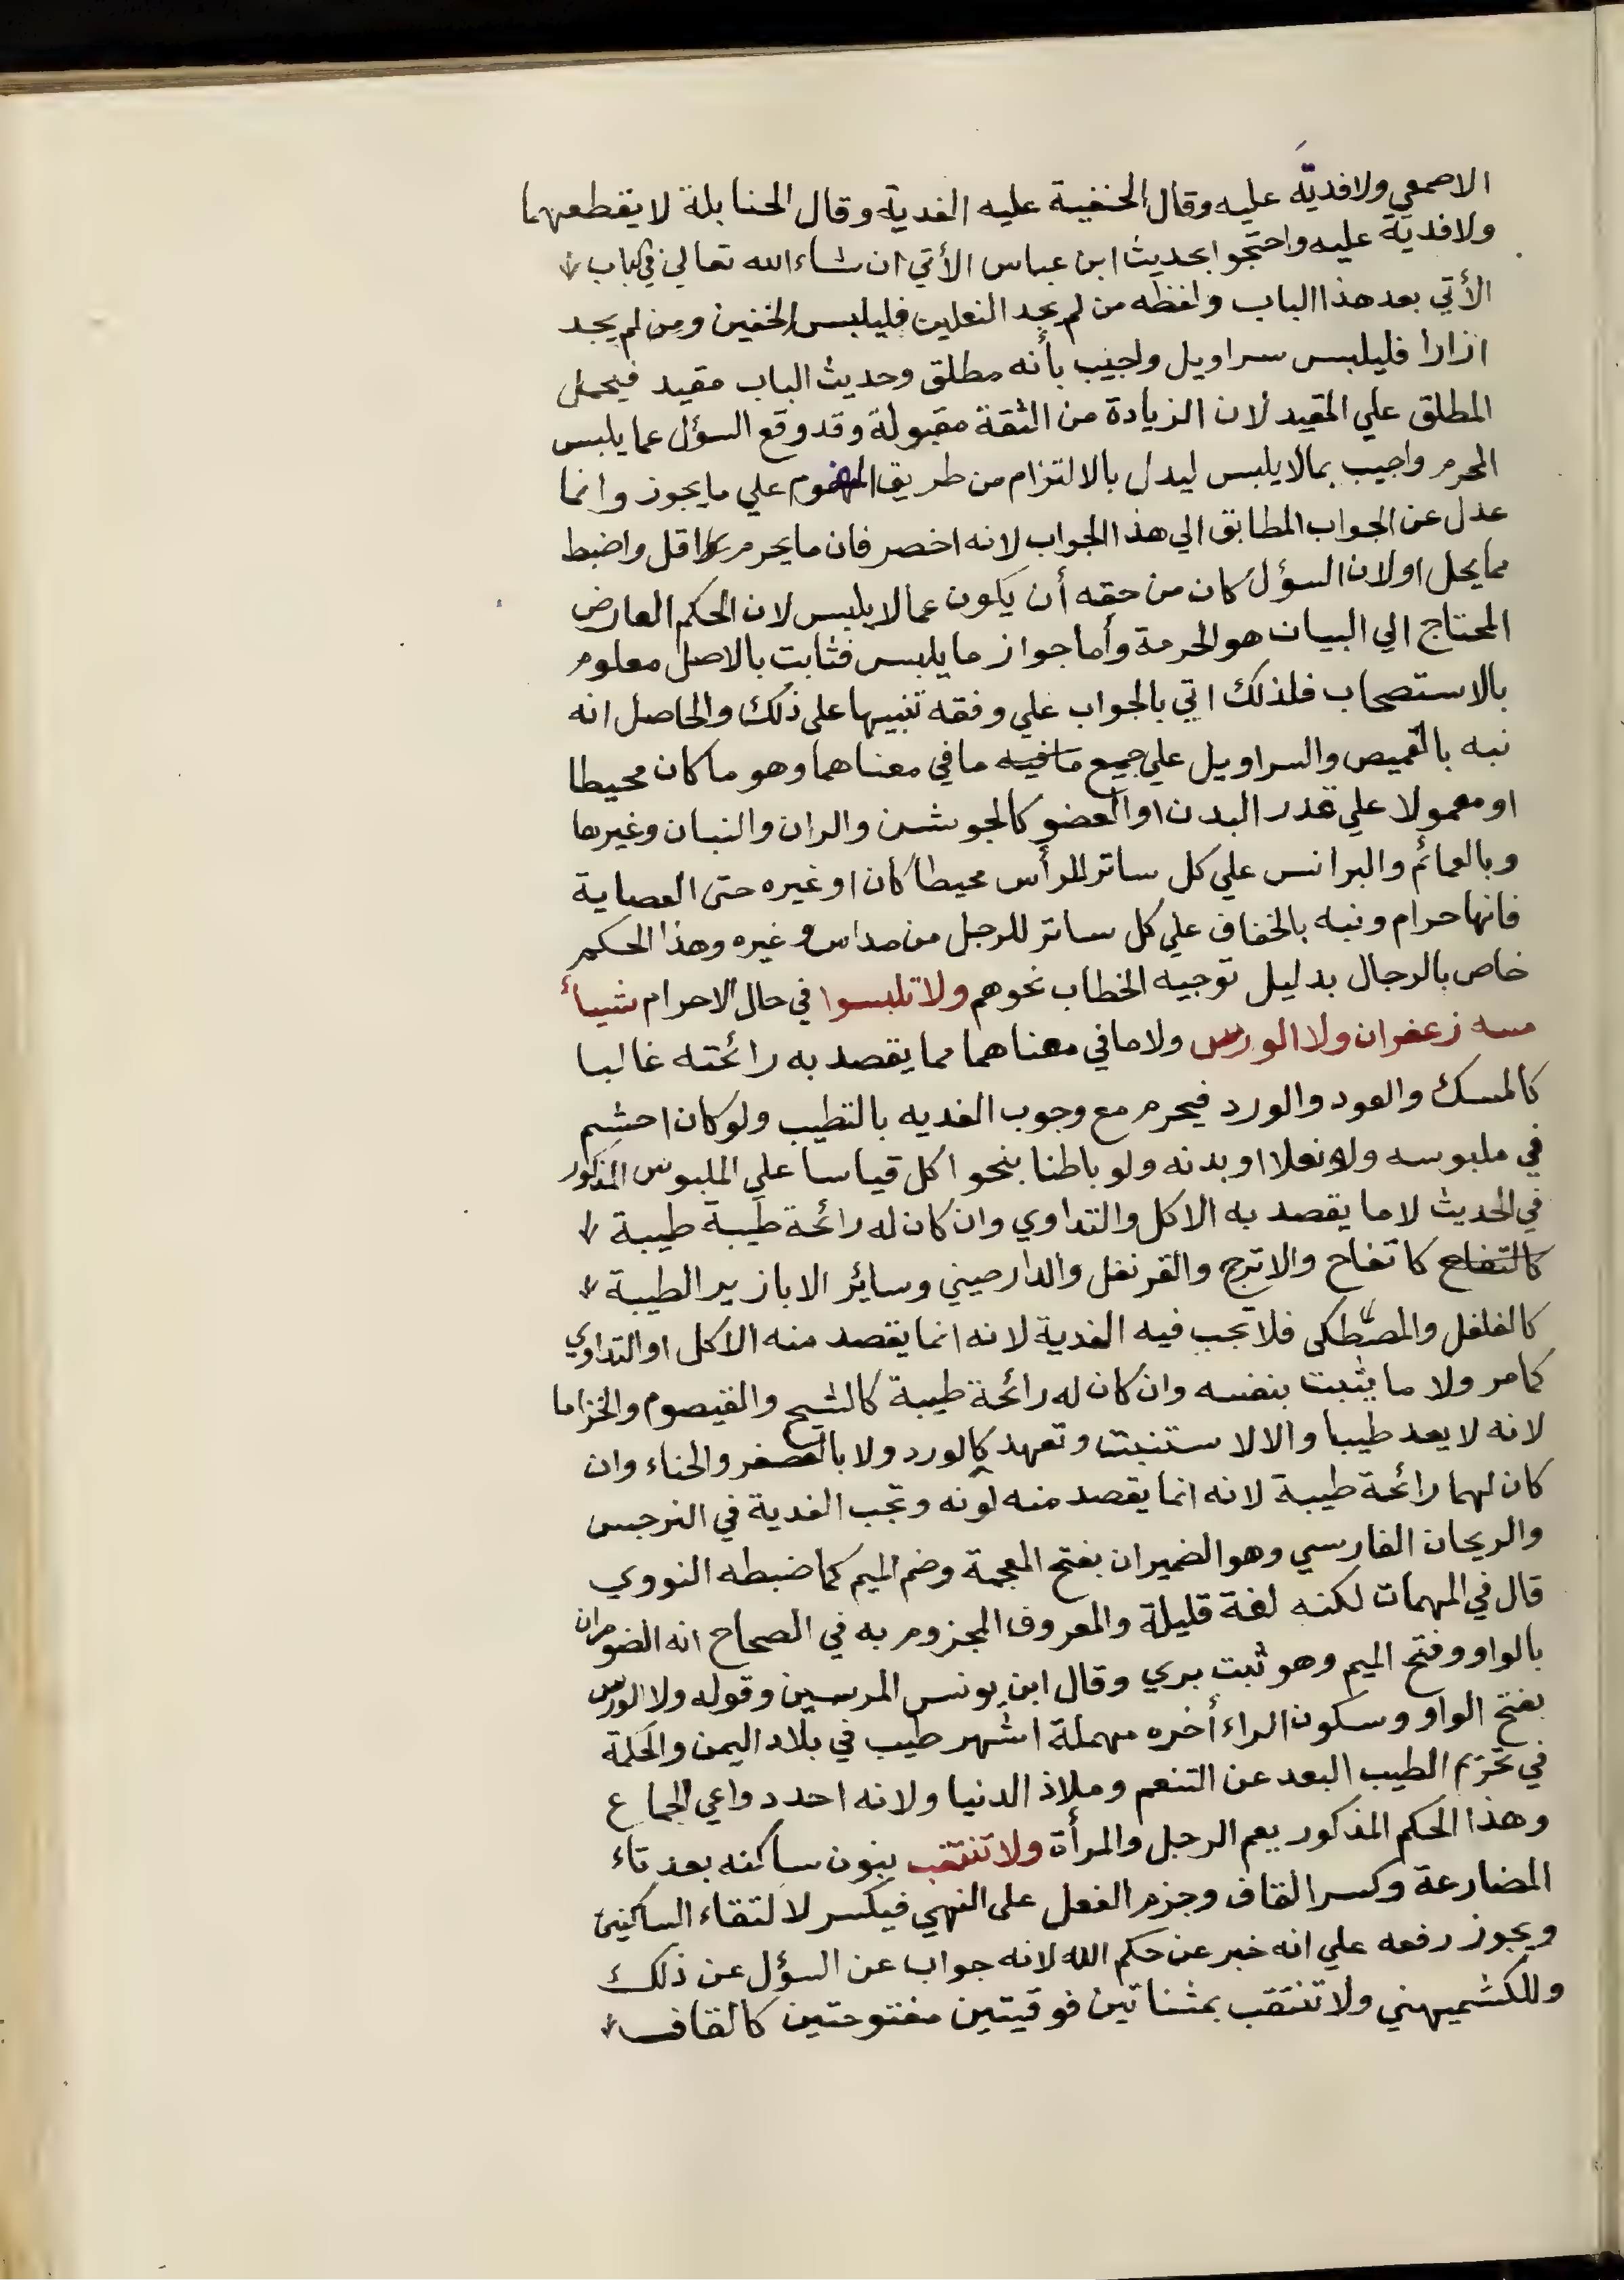 الاصمعي ولا فدية عليه وقال الحنفية عليه الفدية وقال الحنابلة لا يقطعهما
ولا فدية عليه واحتجوا بحديث ابن عباس الأتي ان شاء الله تعالي في كتاب
الأتي بعد هذا الباب ولفظه من لم يجد النعلين فليلبس الخفين ومن لم يجد
ازارا فليلبس سراويل واجيب بأنه مطلق وحديث الباب مقيد فيحمل
المطلق علي المقيد لان الزيادة من الثقة مقبولة وقد وقع السؤل عما يلبس
المحرم واجيب بمالا يلبس ليدل بالالتزام من طريق المفهوم علي ما يجوز وانما
عدل عن الجواب المطابق الي هذا الجواب لانه اخصر فان ما يحرم اقل واضبط
مما يحل او لان السؤل كان من حقه أن يكون عما لا يلبس لان الحكم العارض
المحتاج الي البيان هو الحرمة وأما جواز ما يلبس فثابت بالاصل معلوم
بالاستصحاب فلذلك اتي بالجواب علي وفقه تنبيها علي ذلك والحاصل انه
نبه بالقميص والسراويل علي جميع ما فيه ما في معناهما وهو ما كان محيطا
او معمولا علي قدر البدن او العضو كالجوشن والران والتبان وغيرها
وبالعمائم والبرانس علي كل ساتر للرأس محيطا كان او غيره حتى العصاية
فانها حرام ونبه بالخفاف علي كل ساتر للرجل من مداس وغيره وهذا الحكم
خاص بالرجال بدليل توجيه الخطاب نحوهم ولا تلبسوا في حال الاحرام شيأ
مسه زعفران ولا الورس ولا ما في معناهما مما يقصد به رائحته غالبا
كالمسك والعود والورد فيحرم مع وجوب الفديه بالتطيب ولو كان اخشم
في ملبوسه ولو نعلا او بدنه ولو باطنا بنحو اكل قياسا علي الملبوس المذكور
في الحديث لا ما يقصد به الاكل والتداوي وان كان له رائحة طيبة طيبة
كالتفاح كا تفاح والاترج والقرنفل والدارصيني وسائر الابازير الطيبة
كالفلفل والمصطكى فلا تجب فيه الفدية لانه انما يقصد منه الاكل او التداوي
كما مر ولا ما يثبت بنفسه وان كان له رائحة طيبة كالشيح والقيصوم والخزاما
لانه لا يعد طيبا والا لا ستنبت وتعهد كالورد ولا بالعصفر والحناء وان
كان لهما رائحة طيبة لانه انما يقصد منه لونه وتجب الفدية في النرجس
والريحان الفارسي وهو الضميران بفتح المعجمة وضم الميم كما ضبطه النووي
قال في المهمات لكنه لغة قليلة والمعروف المجزوم به في الصحاح انه الضومران
بالواو وفتح الميم وهو ثبت بري وقال ابن يونس المرسين وقوله ولا الورس
بفتح الواو وسكون الراء أخره مهملة اشهر طيب في بلاد اليمن والحكمة
في تحريم الطيب البعد عن التنعم وملاذ الدنيا ولانه احد دواعي الجماع
وهذا الحكم المذكور يعم الرجل والمرأة ولا تنتقب بنون ساكنه بعد تاء
المضارعة وكسر القاف وجزم الفعل على النهي فيكسر لالتقاء الساكنين
ويجوز رفعه علي انه خبر عن حكم الله لانه جواب عن السؤل عن ذلك
وللكشميهني ولا تنتقب بمثناتين فوقيتين مفتوحتين كالقاف